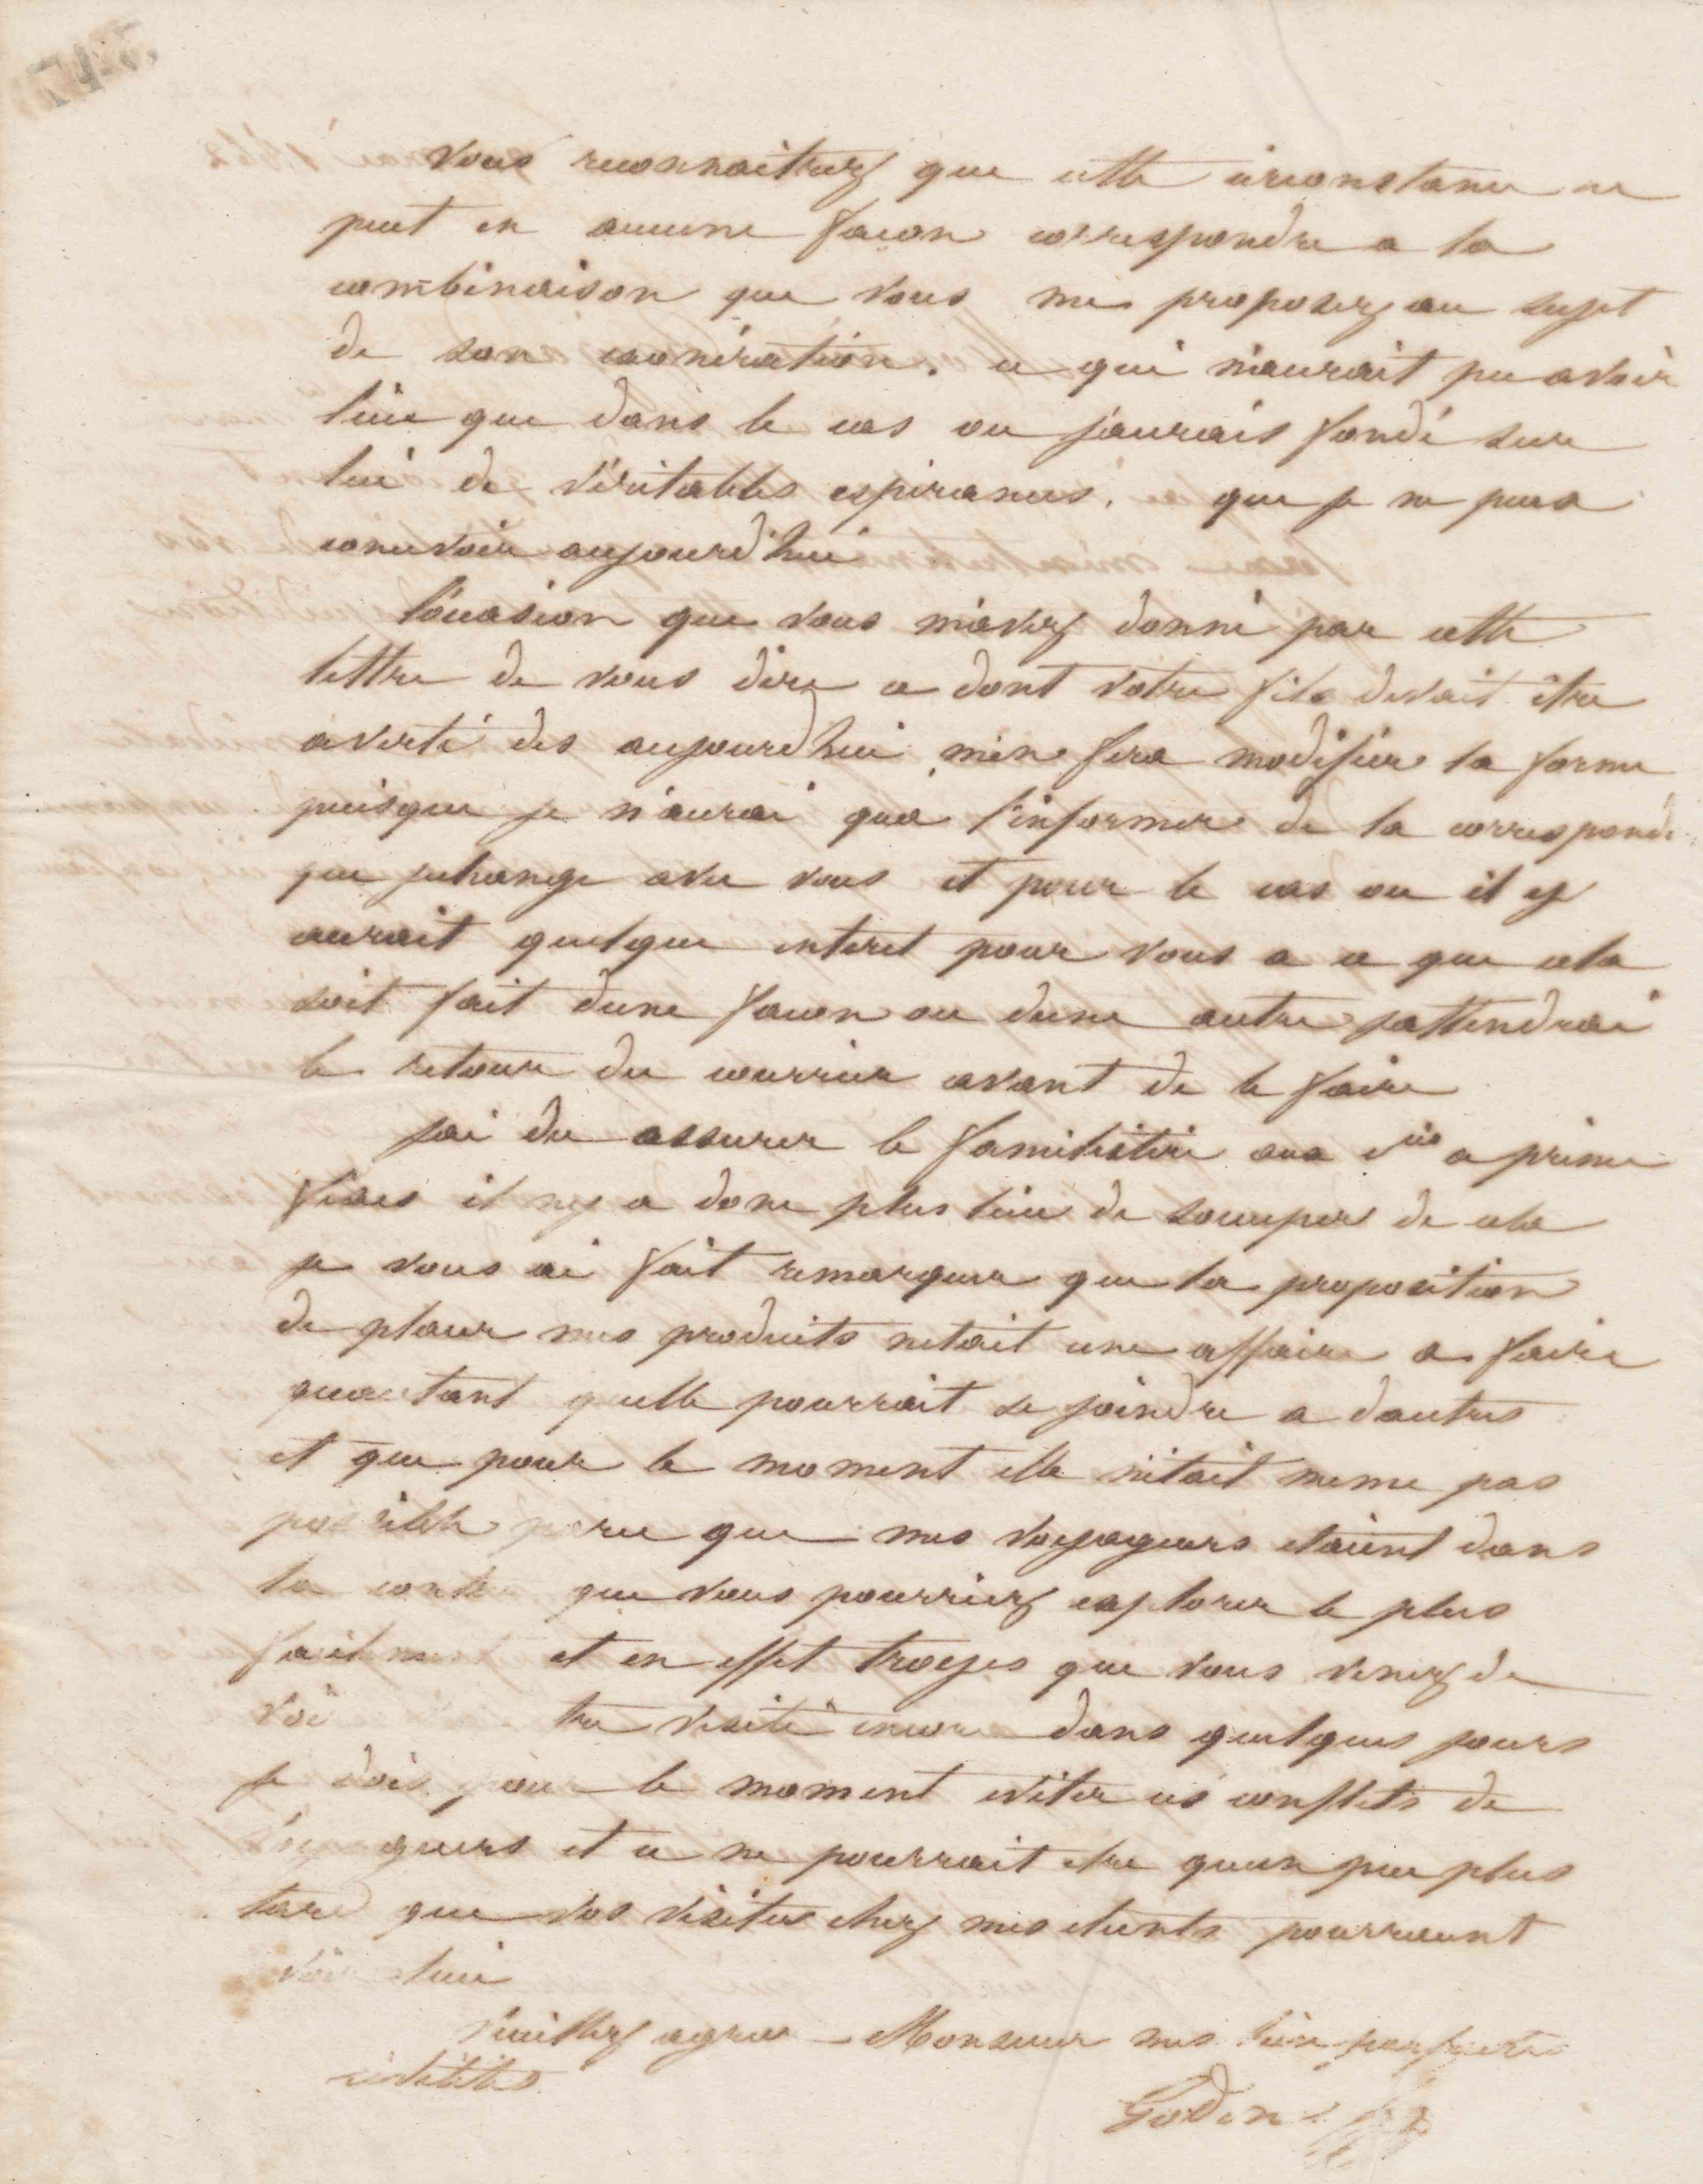 Vous reconnaitrez que cette circonstance ne
peut en aucune facon correspondre a la
combinaison que vous me proposez au sujet
de son exonération. ce qui n'aurait pu avoir
lieu que dans le cas ou j'aurais fondé sur
lui de véritables espérances. que je ne peux
concevoir aujourd'hui
l'occasion que vous m'avez donné par cette
lettre de vous dire ce dont votre fils devait être
averti des aujourd'hui m'en fera modifier la forme
puisque je n'aurai qu'a l'informer de la correspond
que jechange avec vous et pour le cas ou il y
aurait quelque interet pour vous a ce que cela
soit fait dune facon ou dune autre jattendrai
le retour du courrier avant de le faire
jai du assurer le familistère aux cies a prime
fixes il ny a donc plus lieu de soccuper de cela
je vous ai fait remarquer que la proposition
de placer mes produits netait une affaire a faire
quautant quelle pourrait se joindre a dautres
et que pour le moment elle nétait meme pas
possible parce que mes voyageurs etaient dans
la contrée que vous pourriez explorer le plus
facilement et en effet troyes que vous venez de
voi tre visité encore dans quelques jours
je dois pour le moment eviter ces conflets de
voyageurs et ce ne pourrait etre quun peu plus
tard que vos visites chez mes clients pourraient
voir lieu
Veuillez agreer Monsieur mes bien parfaites
civilités
Godin